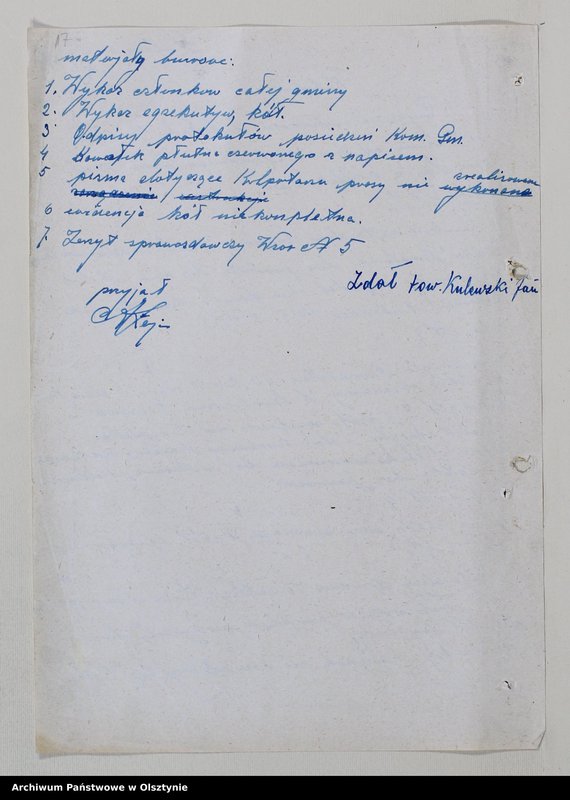 17
materjały biurowe:
1. Wykaz członków całej gminy
2. Wykaz egzekutyw, kół.
3 Odpisy protokułów posiedzeń Kom. Gm.
4 Kawałek płutna czerwonego z napisem.
5 pisma dotyczące Kolportażu prasy nie zrealizowane wykonane
zarządzenia instrukcje
6 ewidencja kół niekompletna.
7 Zeszyt sprawozdawczy Wzór N 5
Zdał tow. Kulewski Jan
przyjął
Archiwum Państwowe w Olsztynie